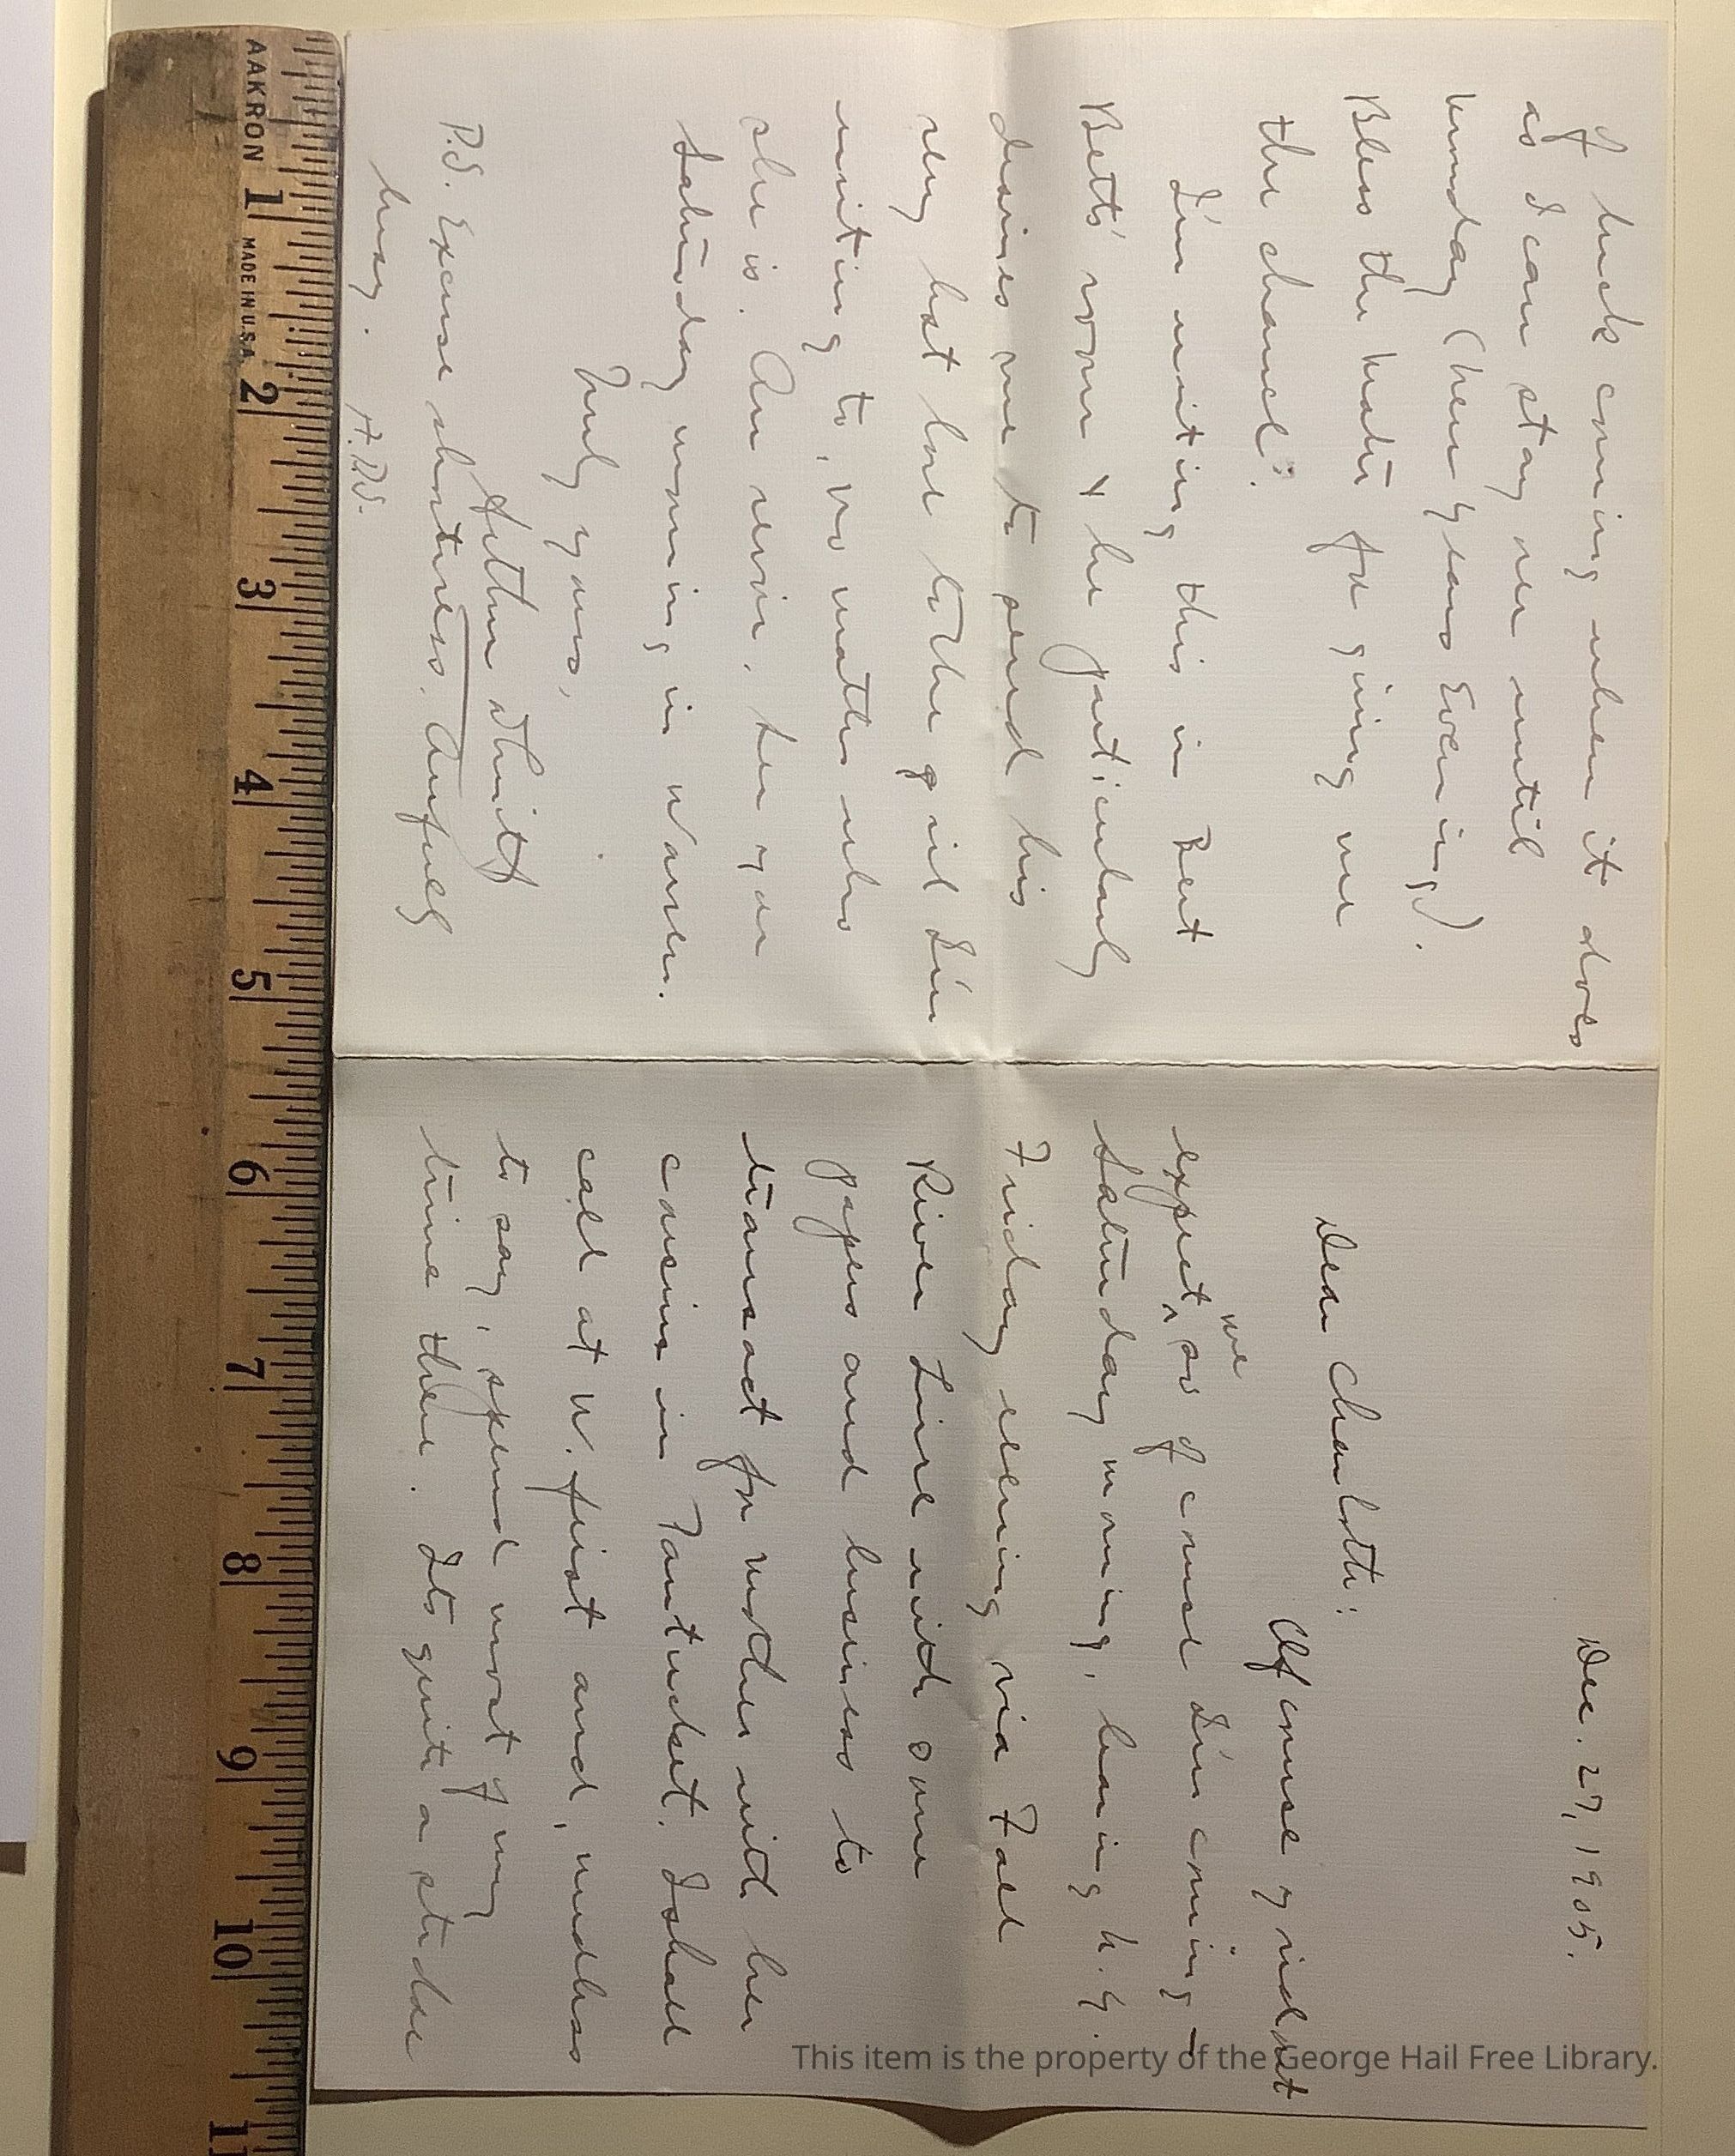 Dec. 27, 1905.
Dear Charlotte:
Of course y' didn't
expect me so of course I'm coming —
Saturday morning, leaving N.Y.
Friday evening via Fall
River Line with some
papers and business to
transact for mother with her
cousin in Pawtucket. I shall
call at W. first and, needless
to say, spend most of my
time there. Its quite a streak
of luck coming when it does
as I can stay over until
Monday (New Years Evening).
Bless the mater for giving me
the chance!
I'm writing this in Bert
Betts' room & he particularly
desires me to send his
very best love to the girl I'm
writing to, no matter who
she is. Au revoir, see you
Saturday morning in Warren.
Truly yours,
P.S. Excuse shortness. Awfully
busy.
AAKRON 1 MADE IN U.S.A. 2 3 4 5 6 7 8 9 10 11
This item is the property of the George Hail Free Library.